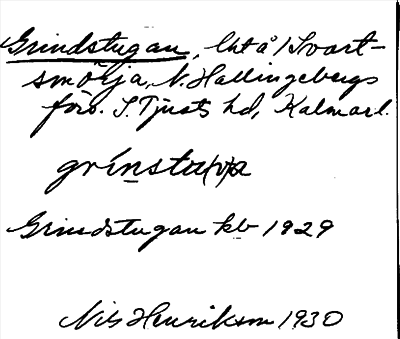 Grindstugan, lht å 1 Svart-
smörja, N. Hallingebergs
förs. S. Tjusts hd, Kalmar l.
grínsta(v)a
Grindstugan kb 1929
Nils Henrikson 1930